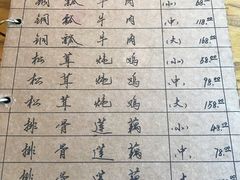 铜瓢牛肉 (小) 68.00
铜瓢牛肉 (中) 118.00
铜瓢牛肉 (大) 168.00
松茸炖鸡 (小) 58.00
松茸炖鸡 (中) 98.00
松茸炖鸡 (大) 158.00
排骨莲藕 (小) 48.00
排骨莲藕 (中) 78.00
排骨莲藕